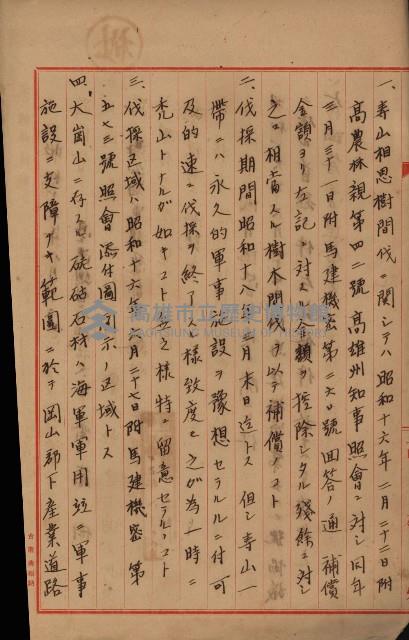 一、寿山相思樹間伐ニ関シテハ昭和十六年二月二十三日附
高農林親第四二號高雄州知事照會ニ対シ同年
三月三十一日附馬建機密第二六〇號回答ノ通補償
金額ヨリ左記ニ対スル金額ヲ控除シタル残餘ニ対シ
之ニ相當スル樹木間伐ヲ以テ補償ノコト
二、伐採期間昭和十八年三月末日迄トス但シ寿山一
帯ニハ永久的軍事施設ヲ豫想セラルルニ付可
及的速ニ伐採ヲ終了スル様致度ク之ガ為一時ニ
禿山トナルガ如キコトナキ様特ニ留意セラルルコト
三、伐採区域ハ昭和十六年六月二十七日附馬建機密第
五七三號照會添付圖面示ノ区域トス
四、大崗山ニ存スル硓𥑮石材ハ海軍軍用並ニ軍事
施設ニ支障ナキ範圍ニ於テ岡山郡下産業道路
高雄市立歷史博物館
KAOHSIUNG MUSEUM OF HISTORY